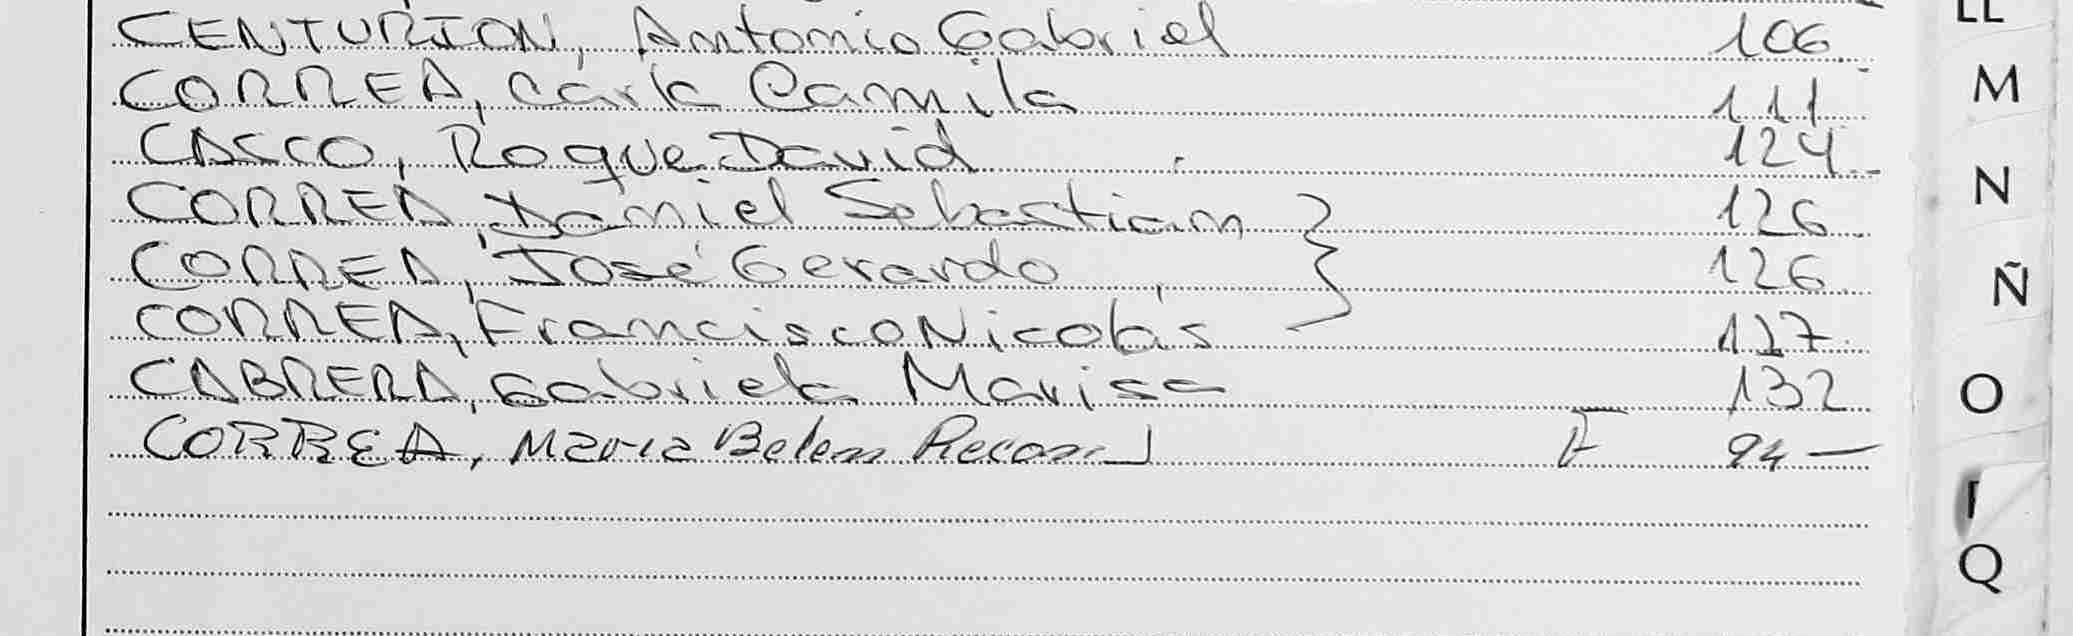 CENTURION, Antonio Gabriel 106
CORREA, Carla Camila 111
CACCO, Roque David 124
CORREA, Daniel Sebastian 126
CORREA, José Gerardo 126
CORREA, Francisco Nicolás 127
CABRERA, Gabriela Marisa 132
CORREA, Maria Belen Recon F 94 —
LL
M
N
Ñ
O
Q